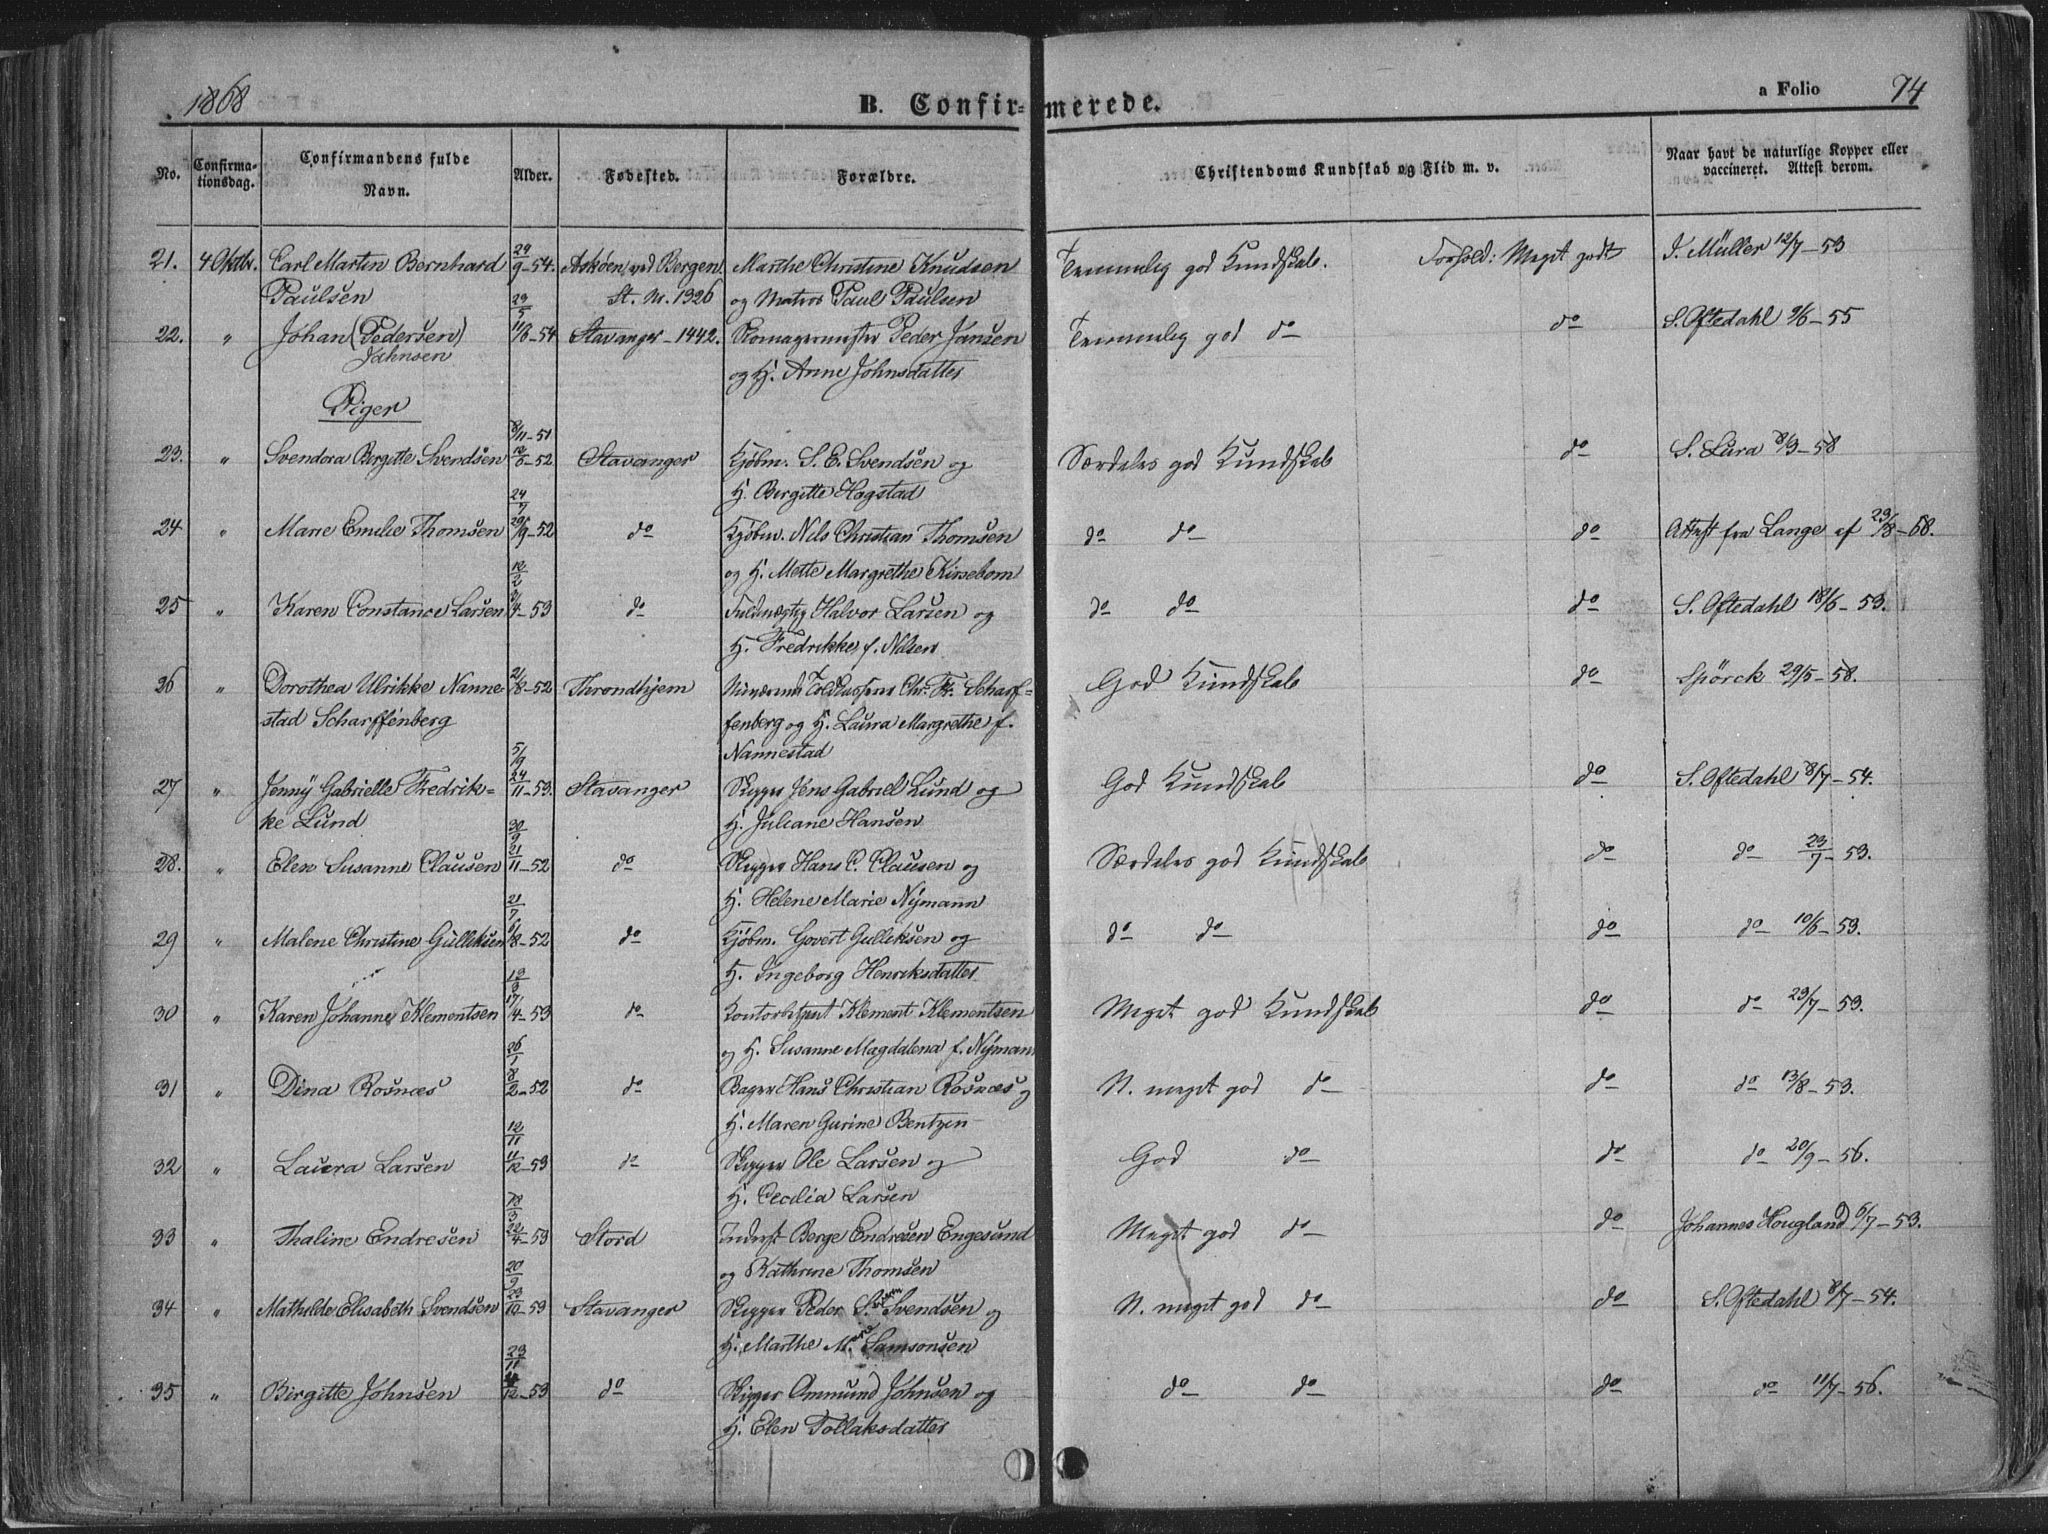 1868
B. Confir=merede.
a Folio 74
No. Confirmationsdag. Confirmandens fulde Navn. Alder. Fødested. Forældre. Christendoms Kundskab og Flid m. v. Naar havt de naturlige Kopper eller vaccineret. Attest derom.
21. 4 Oktbr. Carl Martin Bernhard 29/9-54. Askøen ved Bergen. Marthe Christine Knudsen Temmelig god Kundskab. Forhold: Meget godt J. Müller 12/7-53
Paulsen St. Nr. 1326 og Matros Paul Paulsen
22. " Johan (Pedersen) 29/5 11/6-54 Stavanger-1442. Skomagermester Peder Jansen Temmelig god do do S. Oftedahl 9/6-55
Jahnsen og H. Anne Johnsdatter
Piger
23. " Svendora Birgitte Svendsen 8/11-51 12/6-52 Stavanger Kjøbm. S. E. Svendsen og Særdeles god Kundskab do S. Lura 8/3-58
H. Bergitte Hagstad
24 " Marie Emelie Thomsen 24/7 29/9-52 do Kjøbm. Nils Christian Thomsen do do do Attest fra Lange af 23/8-68.
og H. Mette Margrethe Kirsebom
25 " Karen Constance Larsen 12/2 3/4-53 do Fuldmægtig Halvor Larsen og do do do S. Oftedahl 18/6-53.
H. Fredrikke f. Nilsen
26 " Dorothea Ulrikke Nanne- 2/8-52 Throndhjem Toldkasserer Chr. Fr. Scharf= God Kundskab do Spörck 29/5-58.
stad Scharffenberg fenberg og H. Laura Margrethe f.
Nannestad
27 " Jenny Gabrielle Fredrik= 5/9 24/11-53. Stavanger Skipper Jens Gabriel Lund og God Kundskab do S. Oftedahl 8/7-54.
ke Lund H. Juliane Hansen
28. " Elen Susanne Clausen 30/9 21/11-52 do Skipper Hans C. Clausen og Særdeles god Kundskab do do 23/7-53.
H. Helene Marie Nymann
29 " Malene Christine Gulliksen 21/7 6/8-52 do Kjøbm. Govert Gulliksen og do do do do 10/6-53.
H. Ingeborg Henriksdatter
30 " Karen Johanne Klementsen 13/3 17/4-53 do Kontorbetjent Klement Klementsen Meget god Kundskab do do 23/7-53.
og H. Susanne Magdalena f. Nymann
31 " Dina Rosnæs 26/1 8/2-52 do Bager Hans Christian Rosnæs og N. meget god do do do 13/8-53.
H. Maren Gurine Bentzen
32 " Laura Larsen 12/11 11/12-53 do Skipper Ole Larsen og God do do do 20/9-56.
H. Cecilia Larsen
33 " Thaline Endresen 18/3 22/4-53 Stord Inderst Berge Endresen Engesund Meget god do do Johannes Hougland 6/7-53.
og Kathrine Thomsen
34 " Mathilde Elisabeth Svendsen 20/9 23/10-53 Stavanger Skipper Peder S. Svendsen og N. meget god do do S. Oftedahl 8/7-54.
H. Marthe M. Samsonsen
35 " Birgitte Johnsen 23/11 4/12-53 do Skipper Ommund Johnsen og do do do do 11/7-56.
H. Elen Tollaksdatter